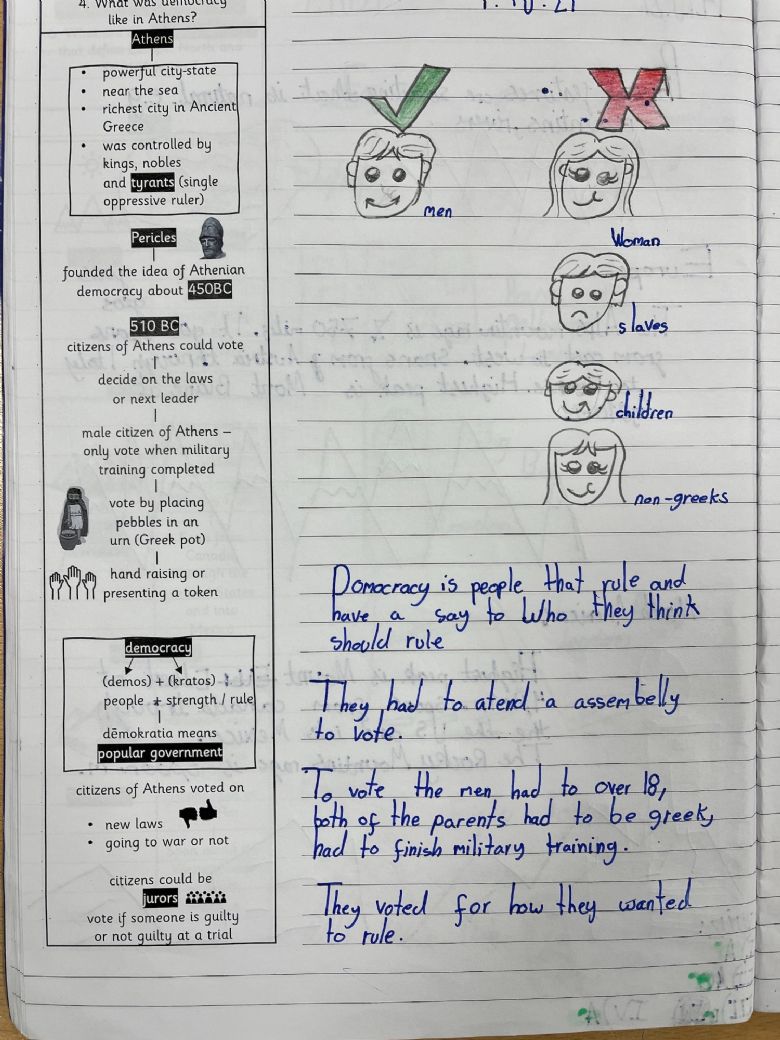 4. What was democracy
like in Athens?
Athens
• powerful city-state
• near the sea
• richest city in Ancient
Greece
• was controlled by
kings, nobles
and tyrants (single
oppressive ruler)
Pericles
founded the idea of Athenian
democracy about 450BC
510 BC
citizens of Athens could vote
decide on the laws
or next leader
male citizen of Athens –
only vote when military
training completed
vote by placing
pebbles in an
urn (Greek pot)
hand raising or
presenting a token
democracy
(demos) + (kratos)
people + strength / rule
dēmokratia means
popular government
citizens of Athens voted on
• new laws
• going to war or not
citizens could be
jurors
vote if someone is guilty
or not guilty at a trial
men
Woman
slaves
children
non-greeks
Domocracy is people that rule and
have a say to Who they think
should rule
They had to atend a assembelly
to vote.
To vote the men had to over 18,
both of the parents had to be greek,
had to finish military training.
They voted for how they wanted
to rule.